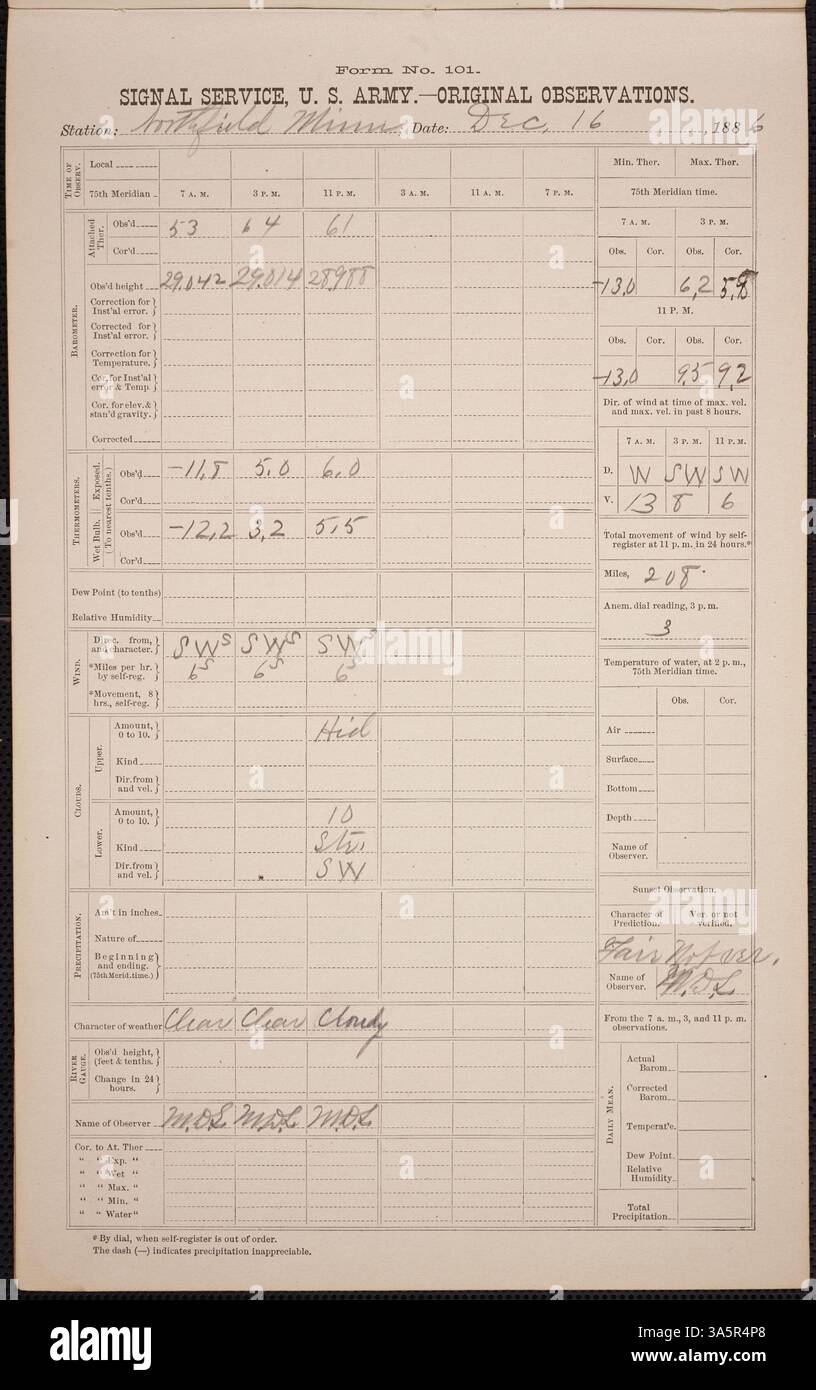 Form No. 101.
SIGNAL SERVICE, U. S. ARMY.—ORIGINAL OBSERVATIONS.
Station: Northfield Minn Date: Dec. 16, 1886
TIME OF OBSERV.
Local
75th Meridian 7 A. M. 3 P. M. 11 P. M. 3 A. M. 11 A. M. 7 P. M.
BAROMETER.
Attached Ther.
Obs'd 53 64 61
Cor'd
Obs'd height 29.042 29.014 28.988
Correction for Inst'al error.
Corrected for Inst'al error.
Correction for Temperature.
Cor. for Inst'al error & Temp.
Cor. for elev. & stan'd gravity.
Corrected
THERMOMETERS.
(To nearest tenths.)
Exposed.
Obs'd -11,8 5,0 6,0
Cor'd
Wet Bulb.
Obs'd -12,2 3,2 5,5
Cor'd
Dew Point (to tenths)
Relative Humidity
WIND.
Direc. from, and character. SWs SWs SWs
*Miles per hr. by self-reg. 6s 6s 6s
*Movement, 8 hrs., self-reg.
CLOUDS.
Upper.
Amount, 0 to 10. Hid
Kind
Dir. from and vel.
Lower.
Amount, 0 to 10. 10
Kind Str.
Dir. from and vel. SW
PRECIPITATION.
Am't in inches
Nature of
Beginning and ending. (75th Merid. time.)
Character of weather Clear Clear Cloudy
RIVER GAUGE.
Obs'd height, (feet & tenths.
Change in 24 hours.
Name of Observer M.D.L. M.D.L. M.D.L.
Cor. to At. Ther
" " Exp. "
" " Wet "
" " Max. "
" " Min. "
" " Water "
* By dial, when self-register is out of order.
The dash (—) indicates precipitation inappreciable.
Min. Ther. Max. Ther.
75th Meridian time.
7 A. M. 3 P. M.
Obs. Cor. Obs. Cor.
-13,0 6,2 5,8
11 P. M.
Obs. Cor. Obs. Cor.
-13,0 9,5 9,2
Dir. of wind at time of max. vel. and max. vel. in past 8 hours.
7 A. M. 3 P. M. 11 P. M.
D. W SW SW
V. 13 8 6
Total movement of wind by self-register at 11 p. m. in 24 hours.*
Miles, 208
Anem. dial reading, 3 p. m.
3
Temperature of water, at 2 p. m., 75th Meridian time.
Obs. Cor.
Air
Surface
Bottom
Depth
Name of Observer.
Sunset Observation.
Character of Prediction. Ver. or not verified.
Fair Not ver.
Name of Observer. M.D.L.
From the 7 a. m., 3, and 11 p. m. observations.
DAILY MEAN.
Actual Barom
Corrected Barom
Temperat'e.
Dew Point
Relative Humidity
Total Precipitation
alamy
a
alamy
Image ID: 3A5R4P8
www.alamy.com